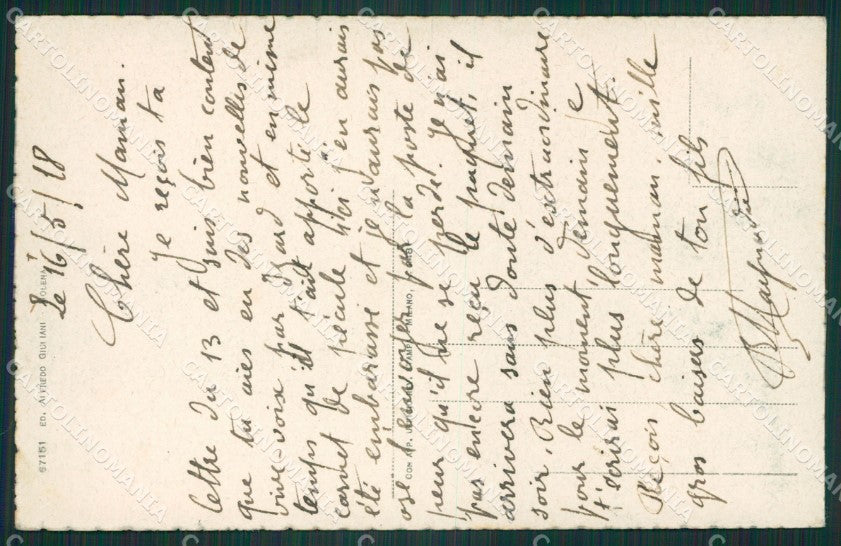 Le 16/5/18
Chère Maman.
Je reçois ta
lettre du 13 et suis bien content
que tu aies eu des nouvelles de
vive voix par Izard et en même
temps qu'il t'ait apporté le
carnet de pécule. Moi j'en aurais
été embarassé et je n'aurais pas
osé l'envoyer par la poste de
peur qu'il ne se perdet. Je n'ai
pas encore reçu le paquet, il
arrivera sans doute demain
soir. Rien plus d'extraordinaire
pour le moment, demain je
t'écrirai plus longuement.
Reçois chère maman mille
gros baisers de ton fils
67151 ED. ALFREDO GIULIANI
CARTOLINOMANIA